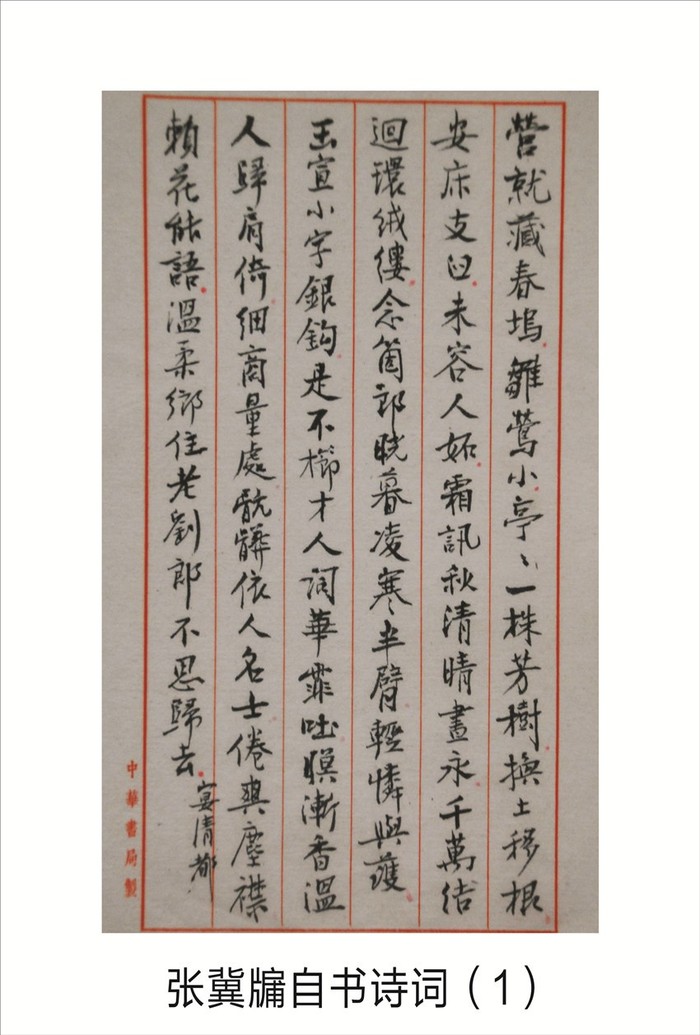 營就藏春塢雛鶯小亭〻一株芳樹換土移根
安床支臼未容人妬霜訊秋清晴晝永千萬結
迴環絨縷念箇郎曉暮凌寒半臂輕憐與護
玉宣小字銀鈎是不櫛才人詞華霏吐暝漸香溫
人歸肩倚細商量處骯髒依人名士倦與塵襟
賴花能語溫柔鄉住老劉郎不思歸去
宴清都
中華書局製
张冀牖自书诗词（1）